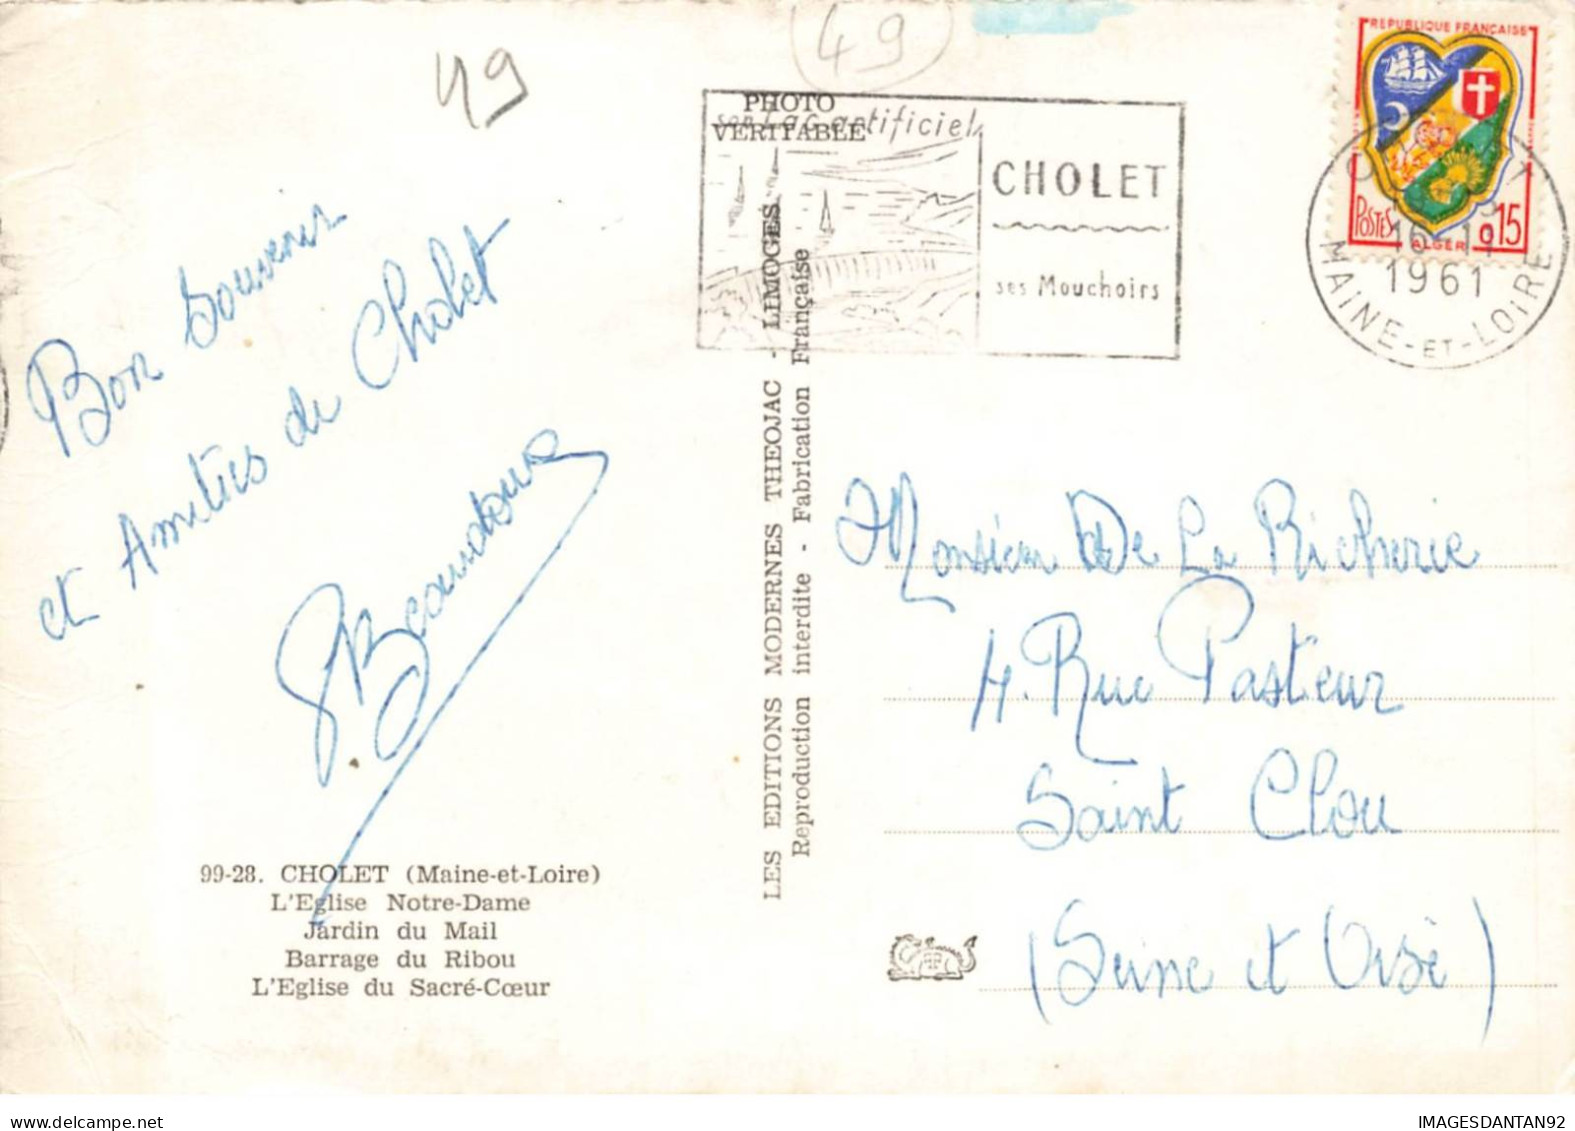 49
49
PHOTO
VERITABLE
son Lac artificiel
CHOLET
ses Mouchoirs
REPUBLIQUE FRANÇAISE
POSTES
ALGER
0,15
16-11
1961
MAINE-ET-LOIRE
Bon Souvenir
et Amitiés de Cholet
LES EDITIONS MODERNES THEOJAC - LIMOGES
Reproduction interdite - Fabrication Française
Monsieur De La Richerie
4. Rue Pasteur
Saint Clou
(Seine et Oise)
99-28. CHOLET (Maine-et-Loire)
L'Eglise Notre-Dame
Jardin du Mail
Barrage du Ribou
L'Eglise du Sacré-Cœur
IMAGESDANTAN92
www.delcampe.net